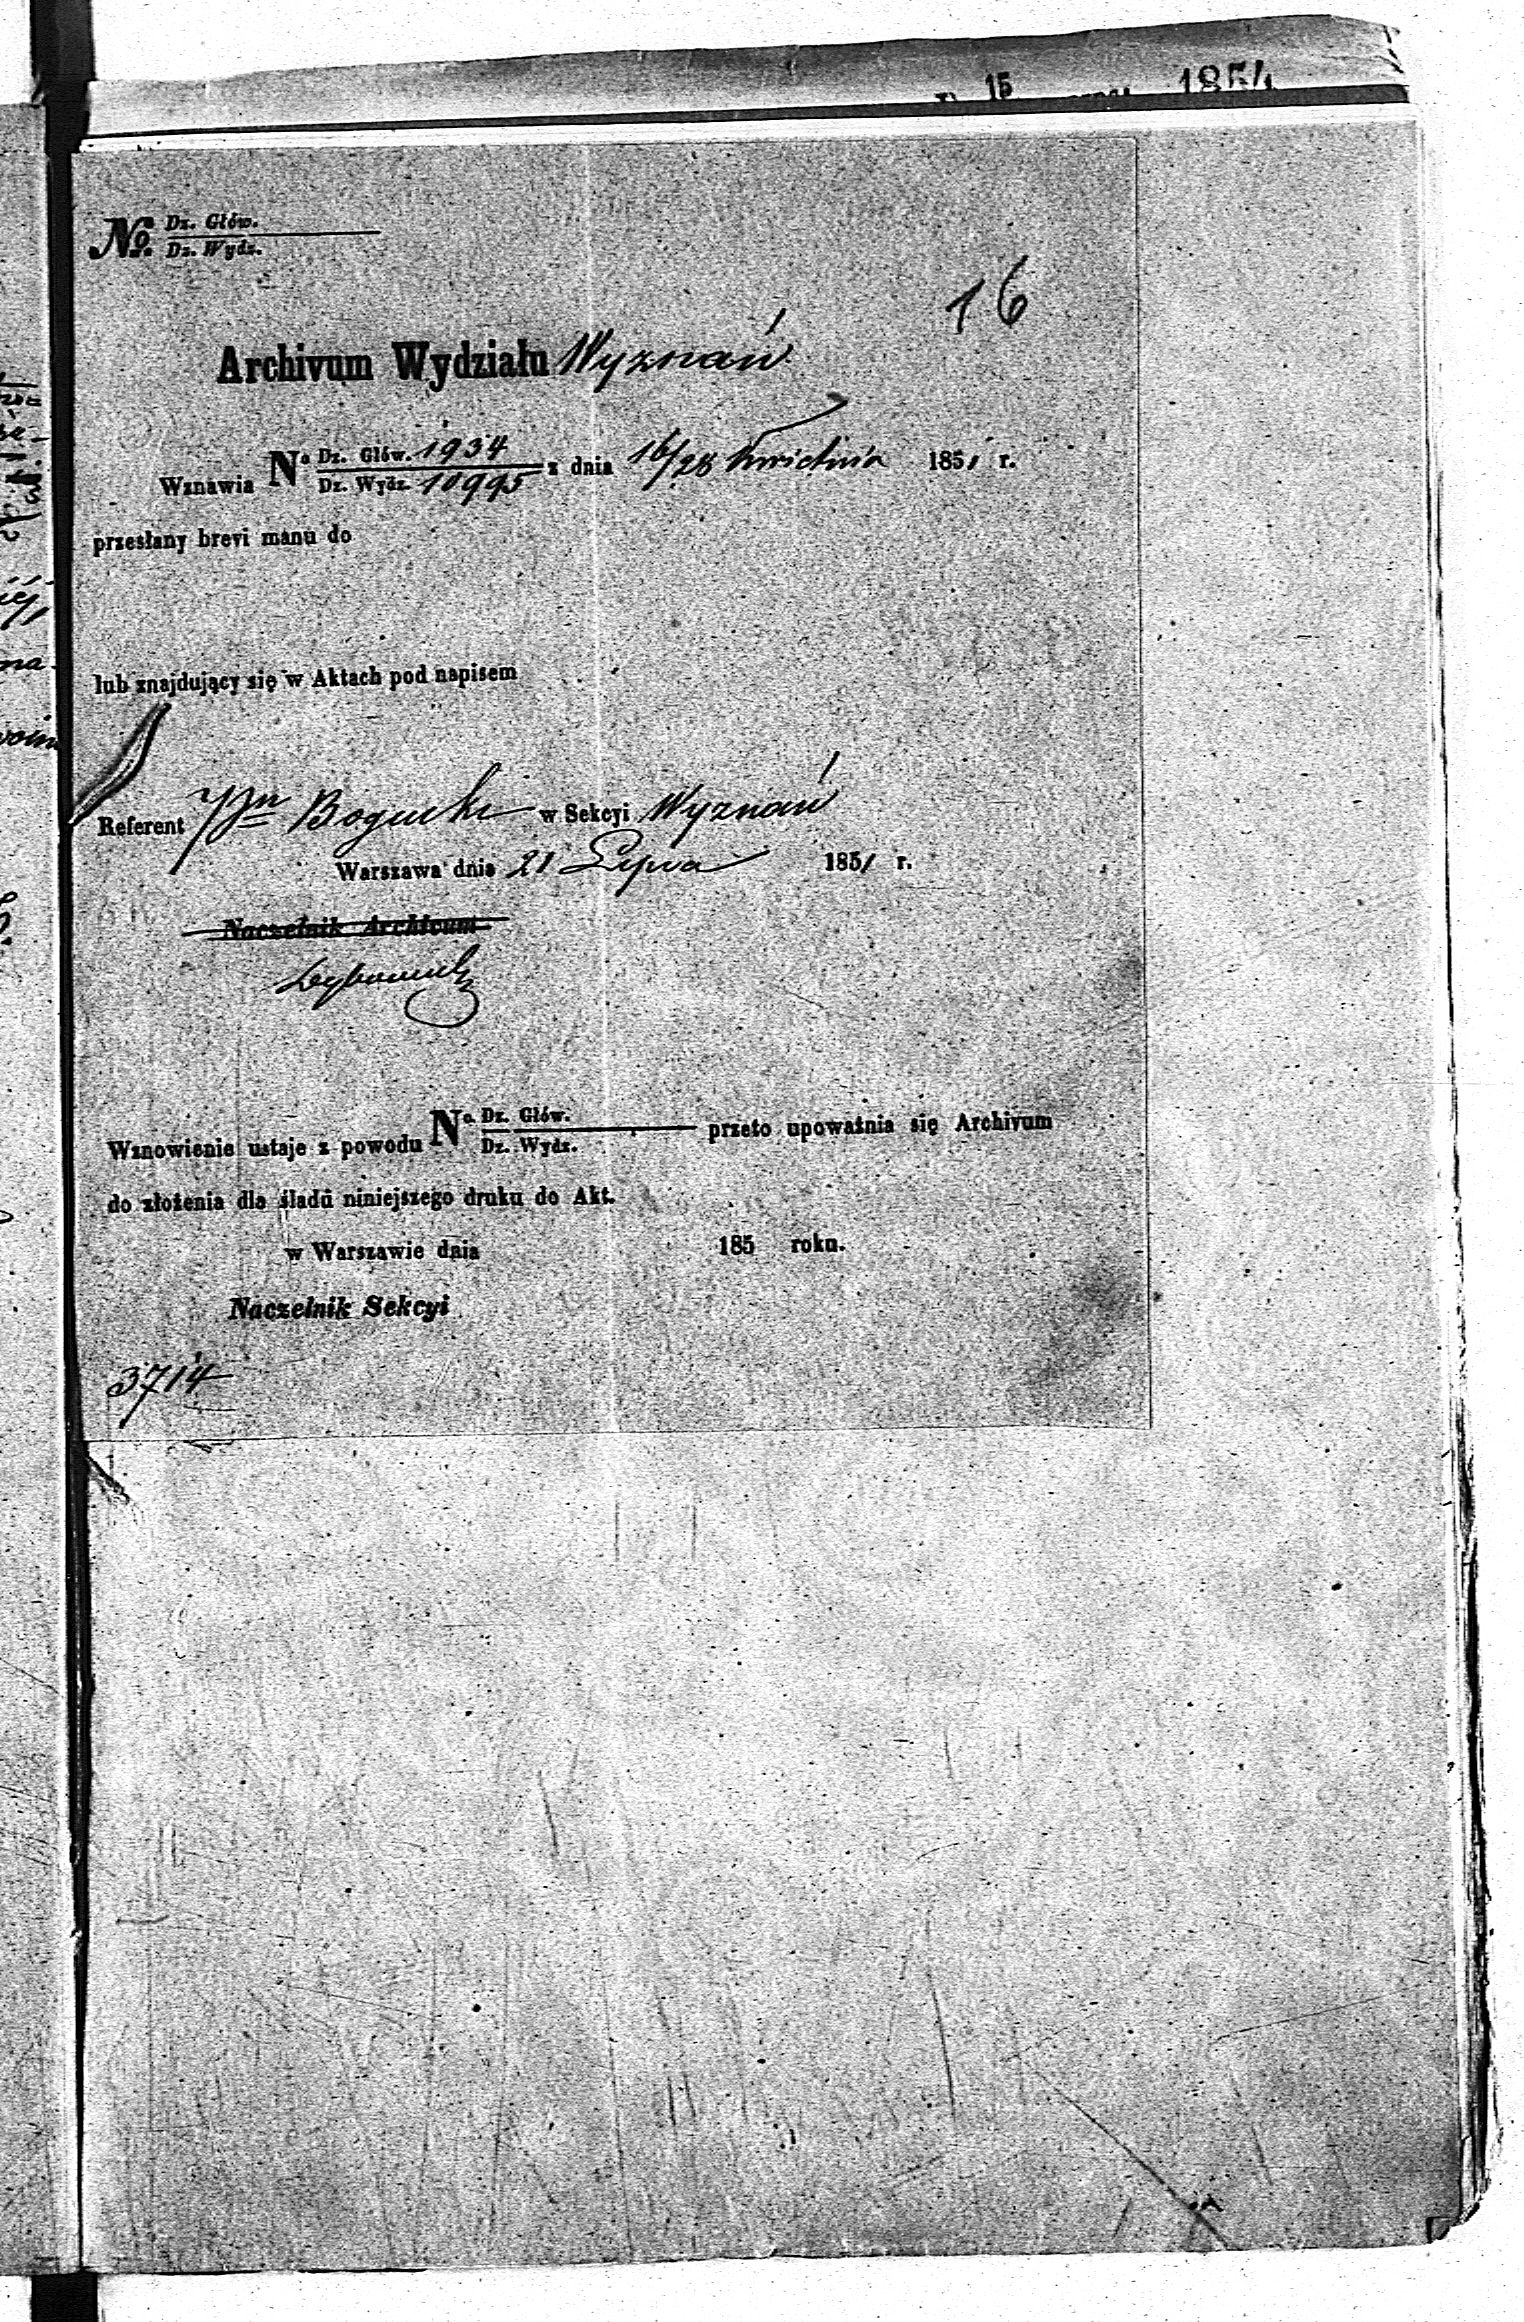 15 1854
No. Dz. Głów.
Dz. Wydz.
16
Archivum Wydziału Wyznań
Wznawia No Dz. Głów. 1934 z dnia 16/28 Kwietnia 1851 r.
Dz. Wydz. 10995
przesłany brevi manu do
lub znajdujący się w Aktach pod napisem
Referent Bogucki w Sekcyi Wyznań
Warszawa dnia 21 Lipca 1851 r.
Naczelnik Archivum
Wznowienie ustaje z powodu No Dz. Głów. przeto upoważnia się Archivum
Dz. Wydz.
do złożenia dla śladu niniejszego druku do Akt.
w Warszawie dnia 185 roku.
Naczelnik Sekcyi
3714